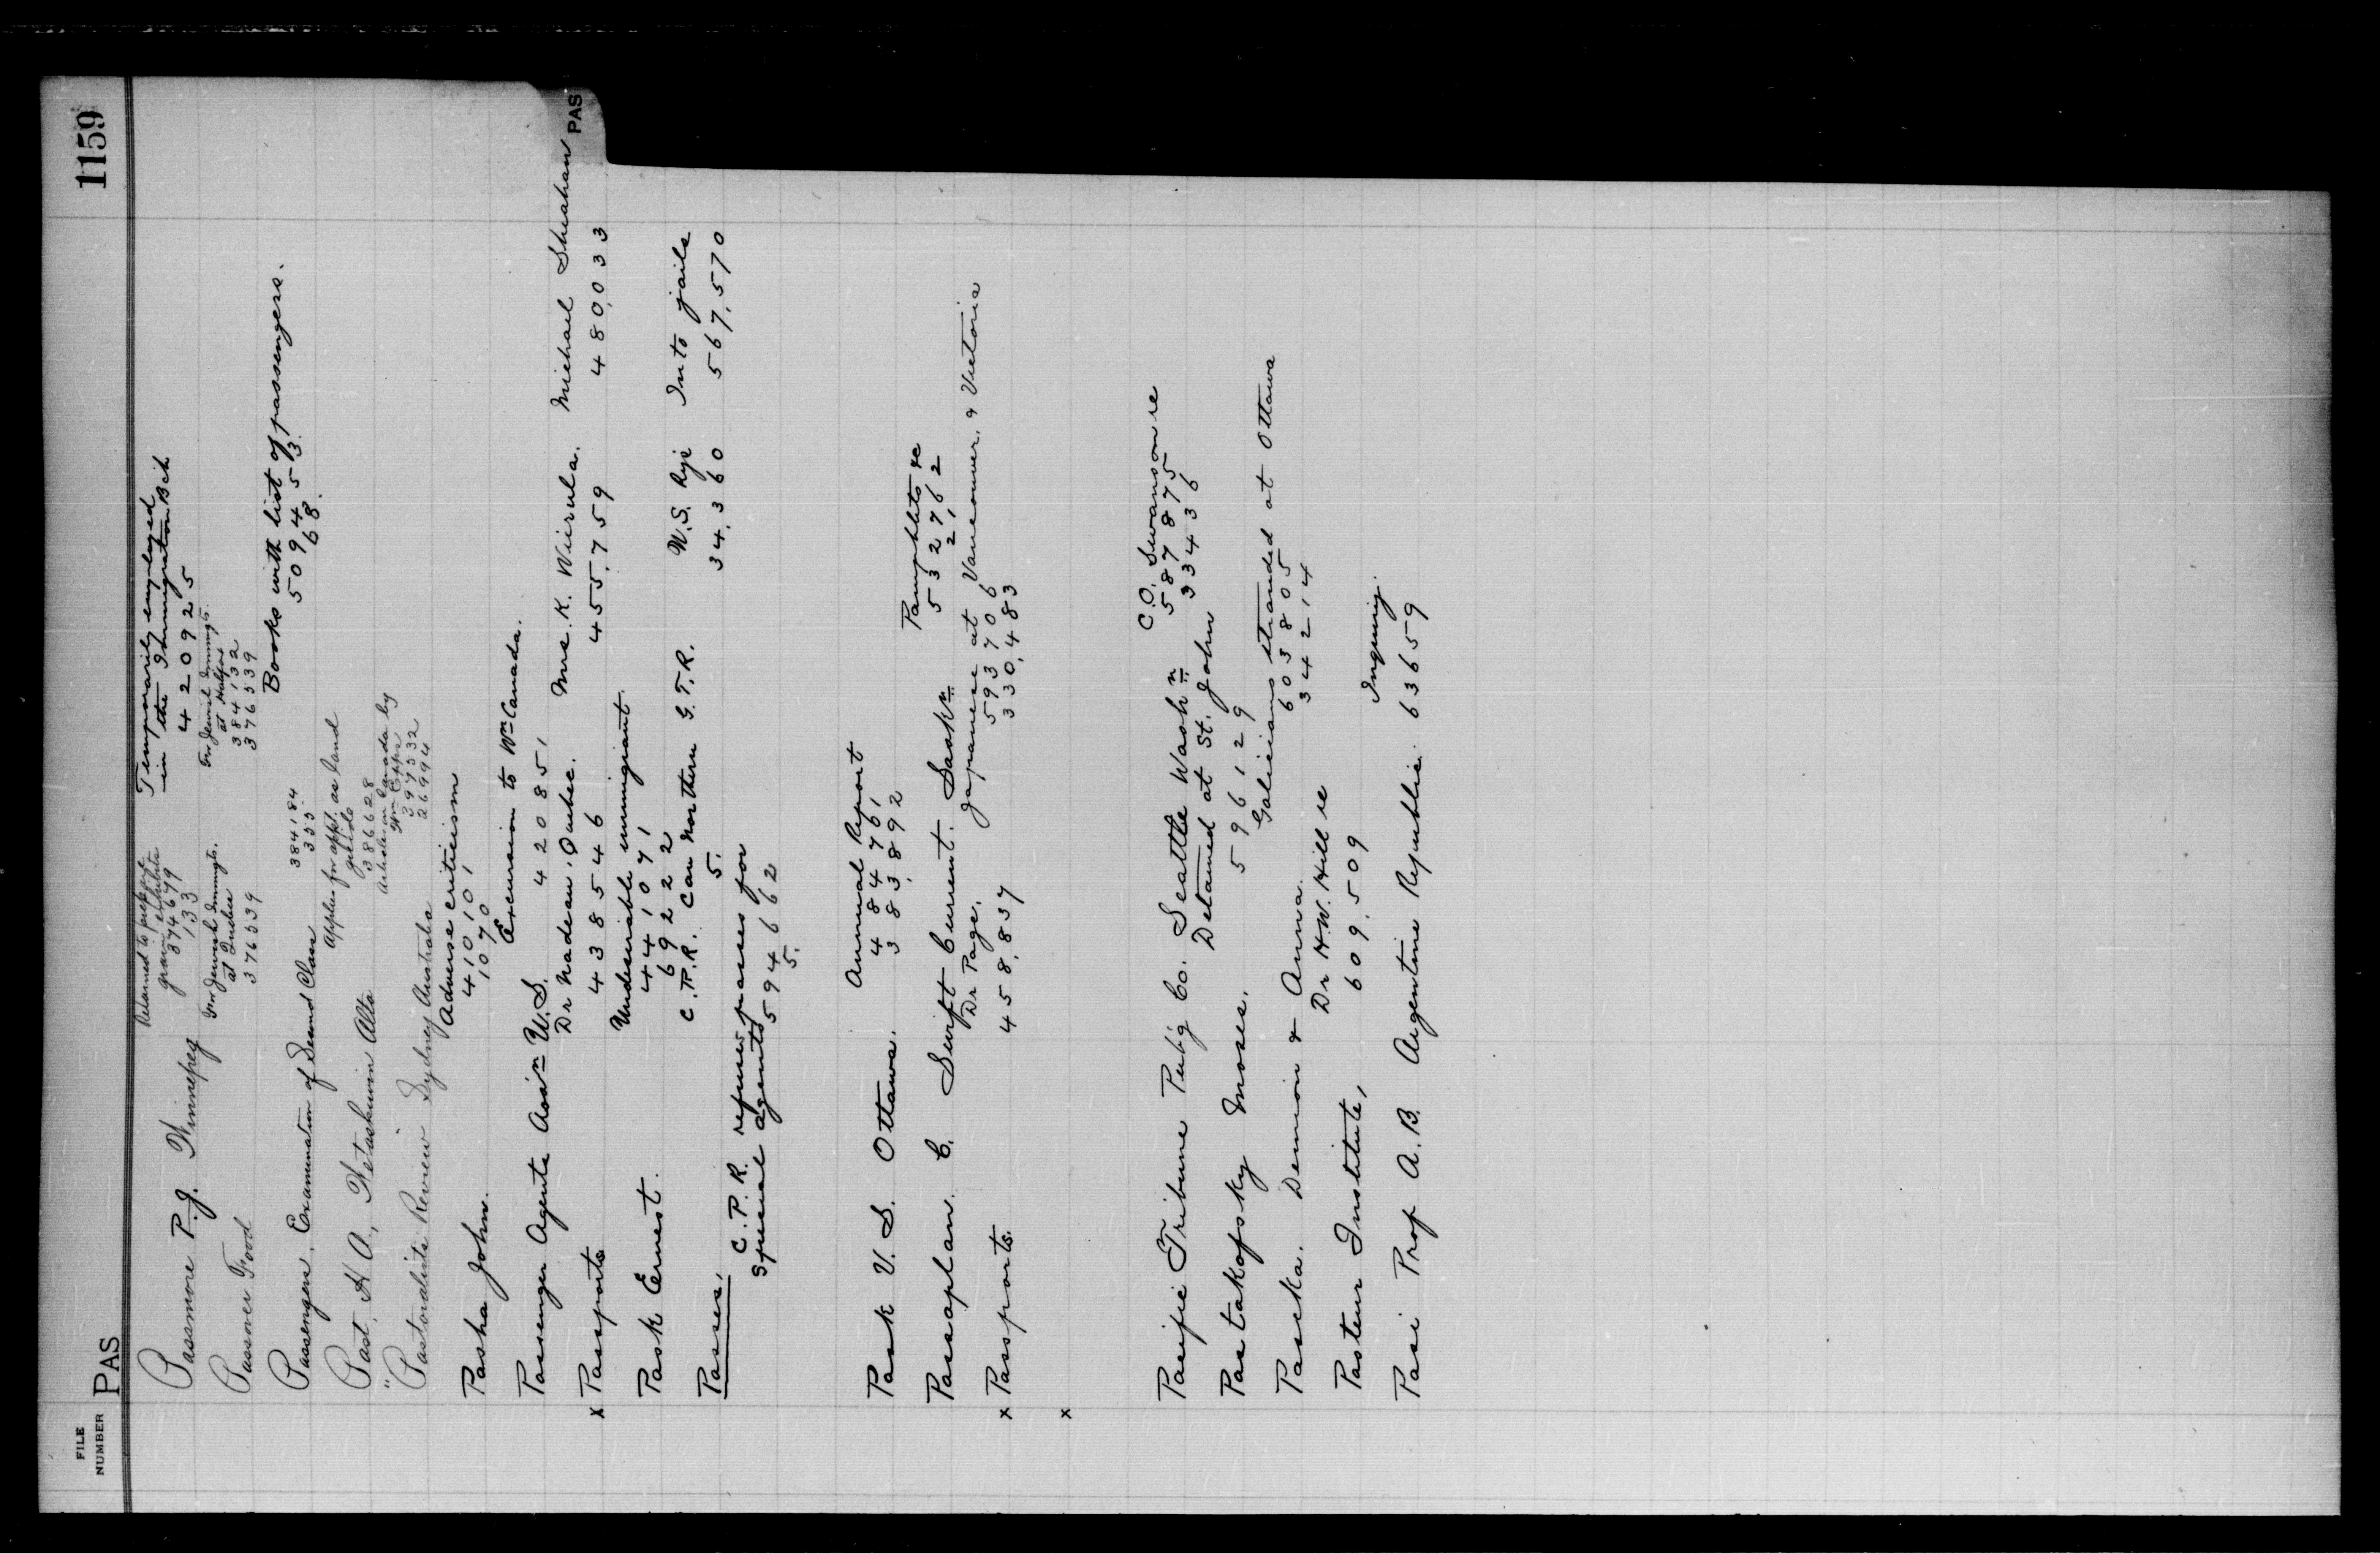 FILE NUMBER PAS 1159
Passmore P.J. Winnipeg
Retained to prepare
grain exhibits
374679
133
Temporarily employed
in the Immigration Bch
420925
Passover Food
For Jewish Immigts.
at Quebec
376539
For Jewish Immigts.
at Halifax
384132
376539
Passengers, Examination of Second Class
384184
355
Books with list of passengers.
509453
68
Past, H A, Wetaskiwin Alta
Applen for appt. as land
guide
386628
"Pastoralists Review Sydney Australia
Article on Canada by
397532
26994
Pasha John.
Adverse criticism
410101
1070
Passenger Agents Assn U.S.
Excursion to Wn Canada.
420851
x Passports
Dr Nadeau, Quebec.
438546
Mrs. K. Wirula.
455,759
Michael Sheahan PAS
480,033
Pask Ernest.
Undesirable immigrant
441071
6922
Passes,
C.P.R. Can Northern G.T.R.
5.
W.S. Rye
34,360
In to jails
567,570
C.P.R. refuses passes for
special agents
594662
5.
Pask V.S. Ottawa.
Annual Report
484761
383,892
Passaplan C. Swift Current. Saskn
Pamphlets re
532762
2,2
x Passports.
Dr Page.
458,837
Japanese at Vancouver, & Victoria
593706
330,483
x
Pacific Tribune Pub'g Co. Seattle Washn
C.O. Swanson re
587875
334436
Pastakofsky Moses.
Detained at St. John
596129
Paska. Demion & Anna.
Galicians stranded at Ottawa
603805
34214
Pasteur Institute,
Dr H.W. Hill re
609,509
Pasi Prof A.B. Argentine Republic.
Inquiry.
63659